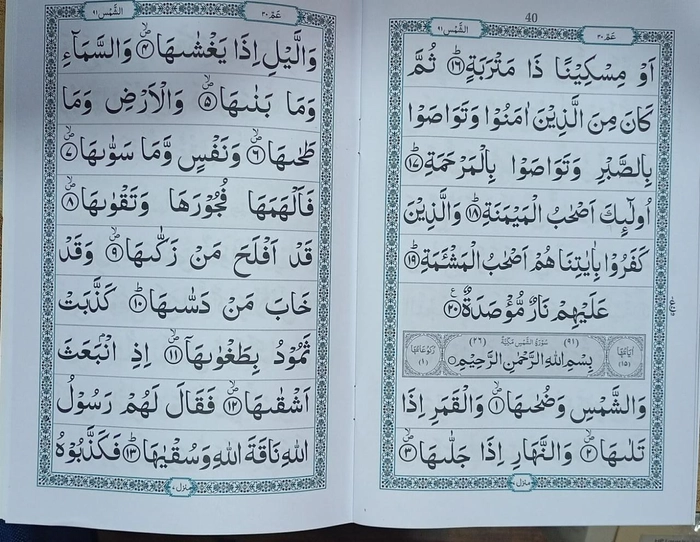 40
عَمَّ ٣٠
الشَّمْس ٩١
اَوْ مِسْكِيْنًا ذَا مَتْرَبَةٍ ۝١٦ ثُمَّ
كَانَ مِنَ الَّذِيْنَ اٰمَنُوْا وَتَوَاصَوْا
بِالصَّبْرِ وَتَوَاصَوْا بِالْمَرْحَمَةِ ۝١٧
اُولٰٓئِكَ اَصْحٰبُ الْمَيْمَنَةِ ۝١٨ وَالَّذِيْنَ
كَفَرُوْا بِاٰيٰتِنَا هُمْ اَصْحٰبُ الْمَشْـَٔمَةِ ۝١٩
عَلَيْهِمْ نَارٌ مُّؤْصَدَةٌ ۝٢٠
اٰيَاتُهَا (١٥)
(٩١) سُوْرَةُ الشَّمْسِ مَكِّيَّةٌ (٢٦)
رُكُوْعَاتُهَا (١)
بِسْمِ اللّٰهِ الرَّحْمٰنِ الرَّحِيْمِ
وَالشَّمْسِ وَضُحٰىهَا ۝١ وَالْقَمَرِ اِذَا
تَلٰىهَا ۝٢ وَالنَّهَارِ اِذَا جَلّٰىهَا ۝٣
منزل ٧
عَمَّ ٣٠
الشَّمْس ٩١
وَالَّيْلِ اِذَا يَغْشٰىهَا ۝٤ وَالسَّمَآءِ
وَمَا بَنٰىهَا ۝٥ وَالْاَرْضِ وَمَا
طَحٰىهَا ۝٦ وَنَفْسٍ وَّمَا سَوّٰىهَا ۝٧
فَاَلْهَمَهَا فُجُوْرَهَا وَتَقْوٰىهَا ۝٨
قَدْ اَفْلَحَ مَنْ زَكّٰىهَا ۝٩ وَقَدْ
خَابَ مَنْ دَسّٰىهَا ۝١٠ كَذَّبَتْ
ثَمُوْدُ بِطَغْوٰىهَآ ۝١١ اِذِ انْۢبَعَثَ
اَشْقٰىهَا ۝١٢ فَقَالَ لَهُمْ رَسُوْلُ
اللّٰهِ نَاقَةَ اللّٰهِ وَسُقْيٰهَا ۝١٣ فَكَذَّبُوْهُ
منزل ٧